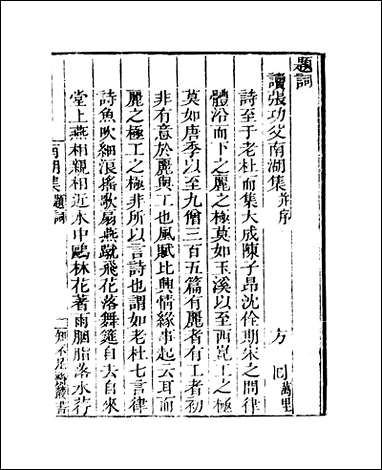 題詞
讀張功父南湖集并序
方回萬里
詩至于老杜而集大成陳子昂沈佺期宋之問律
體沿而下之麗之極莫如玉溪以至西崑工之極
莫如唐季以至九僧三百五篇有麗者有工者初
非有意於麗與工也風賦比興情緣事起云耳而
麗之極工之極非所以言詩也謂如老杜七言律
詩魚吹細浪搖歌扇燕蹴飛花落舞筵自去自來
堂上燕相親相近水中鷗林花著雨胭脂落水荇
南湖集題詞
一
知不足齋叢書